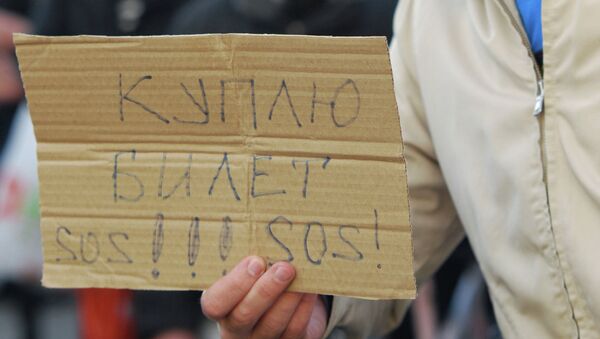 КУПЛЮ
БИЛЕТ
SOS!!! SOS!